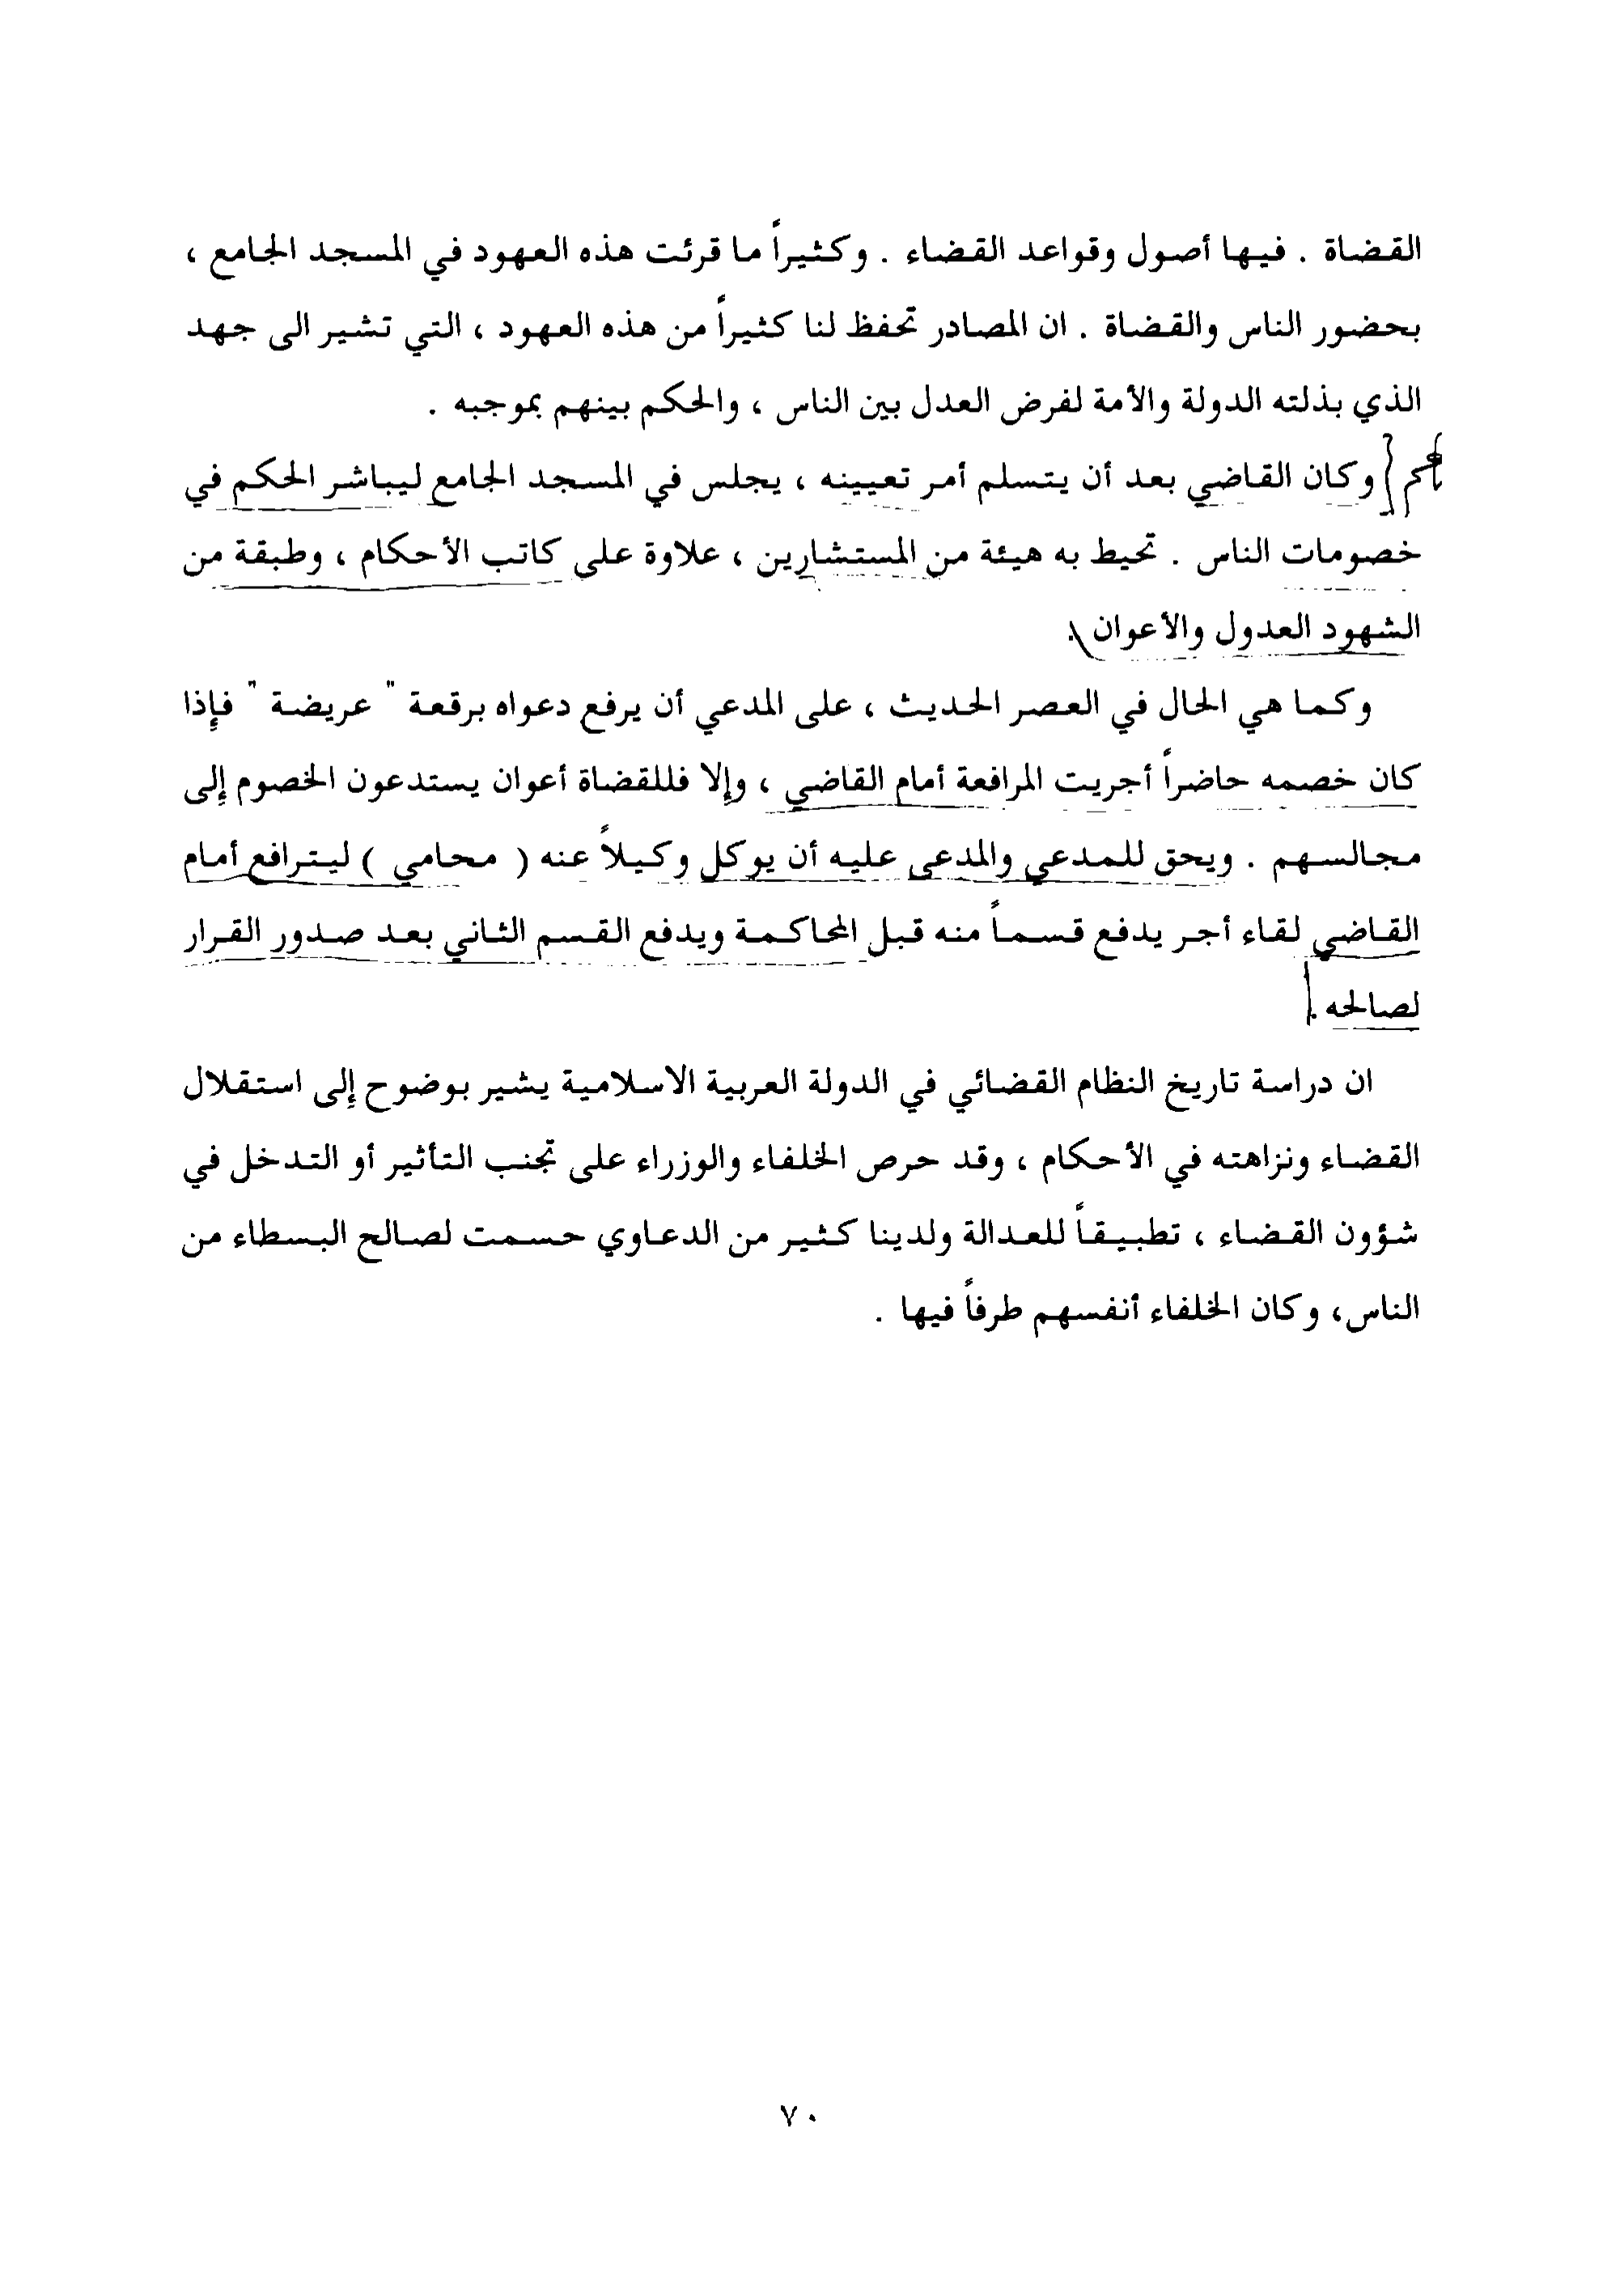 القضاة . فيها أصول وقواعد القضاء . وكثيراً ما قرئت هذه العهود في المسجد الجامع ،
بحضور الناس والقضاة . ان المصادر تحفظ لنا كثيراً من هذه العهود ، التي تشير الى جهد
الذي بذلته الدولة والأمة لفرض العدل بين الناس ، والحكم بينهم بموجبه .
وكان القاضي بعد أن يتسلم أمر تعيينه ، يجلس في المسجد الجامع ليباشر الحكم في
خصومات الناس . تحيط به هيئة من المستشارين ، علاوة على كاتب الأحكام ، وطبقة من
الشهود العدول والأعوان .
وكما هي الحال في العصر الحديث ، على المدعي أن يرفع دعواه برقعة " عريضة " فإذا
كان خصمه حاضراً أجريت المرافعة أمام القاضي ، وإلا فللقضاة أعوان يستدعون الخصوم إلى
مجالسهم . ويحق للمدعي والمدعى عليه أن يوكل وكيلاً عنه ( محامي ) ليترافع أمام
القاضي لقاء أجر يدفع قسماً منه قبل المحاكمة ويدفع القسم الثاني بعد صدور القرار
لصالحه .
ان دراسة تاريخ النظام القضائي في الدولة العربية الاسلامية يشير بوضوح إلى استقلال
القضاء ونزاهته في الأحكام ، وقد حرص الخلفاء والوزراء على تجنب التأثير أو التدخل في
شؤون القضاء ، تطبيقاً للعدالة ولدينا كثير من الدعاوي حسمت لصالح البسطاء من
الناس، وكان الخلفاء أنفسهم طرفاً فيها .
٧٠